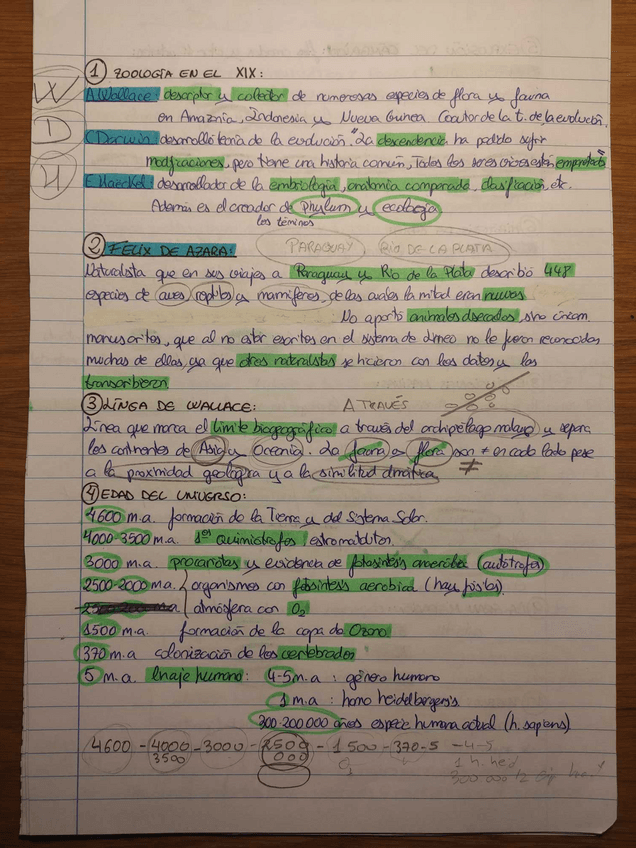 ① ZOOLOGÍA EN EL XIX:
W
A.Wallace: descriptor y colector de numerosas especies de flora y fauna
en Amazonia, Indonesia y Nueva Guinea. Coautor de la t. de la evolución.
D
C.Darwin: desarrolló teoría de la evolución. "La descendencia ha podido sufrir
modificaciones, pero tiene una historia común, Todos los seres vivos están emparentados"
H
E.Haeckel: desarrollador de la embriología, anatomía comparada, clasificación, etc.
Además es el creador de phylum y ecología
los términos
② FÉLIX DE AZARA: PARAGUAY RÍO DE LA PLATA
Naturalista que en sus viajes a Paraguay y Río de la Plata describió 448
especies de aves, reptiles y mamíferos, de las cuales la mitad eran nuevas
No aportó animales disecados, sino
manuscritos, que al no estar escritos en el sistema de Linneo no le fueron reconocidas
muchas de ellas, ya que otros naturalistas se hicieron con los datos y las
transcribieron
③ LÍNEA DE WALLACE: A TRAVÉS
Línea que marca el límite biogeográfico a través del archipiélago malayo y separa
los continentes de Asia y Oceanía. La fauna y flora son ≠ en cada lado pese
a la proximidad geológica y a la similitud climática
≠
④ EDAD DEL UNIVERSO:
4600 m.a. formación de la Tierra y del Sistema Solar.
4000-3500 m.a. 1os Quimiótrofos / estromatolitos.
3000 m.a. procariotas y evidencia de fotosíntesis anaerobia (autótrofos)
2500-2000 m.a. organismos con fotosíntesis aerobica (hay fósiles).
atmósfera con O2
1500 m.a. formación de la capa de Ozono
370 m.a. colonización de los vertebrados
5 m.a. linaje humano: 4-5 m.a: género humano
1 m.a: homo heidelbergensis
300-200.000 años especie humana actual (h. sapiens)
4600 - 4000 - 3000 - 2500 - 1500 - 370 - 5 - 4-5
3500 000 O3 1 h. hed
300.000